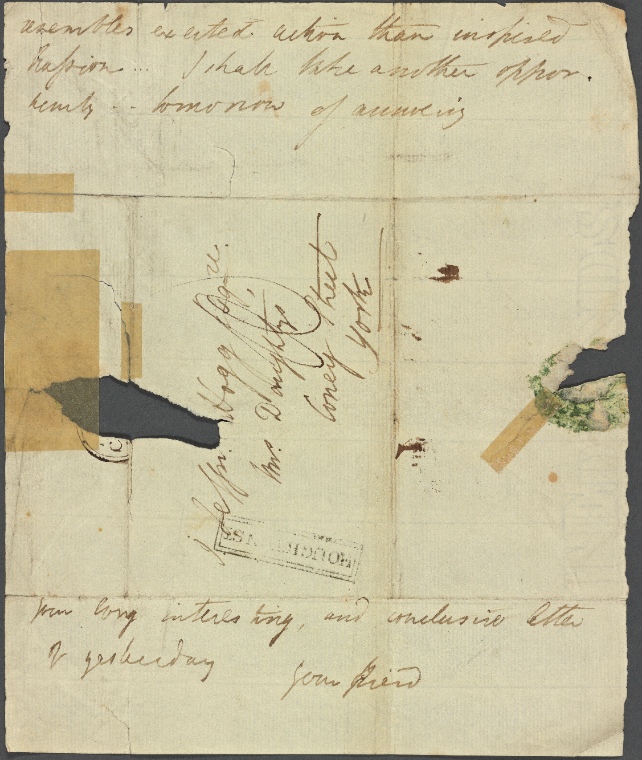 resembles exerted action than inspired
passion ... I shall take another oppor.
tunity -- tomorrow of answering
T. Jeffn. Hogg Esqre.
Mrs Doughtys
Coney Street
York
your long interesting, and conclusive letter
of yesterday your friend